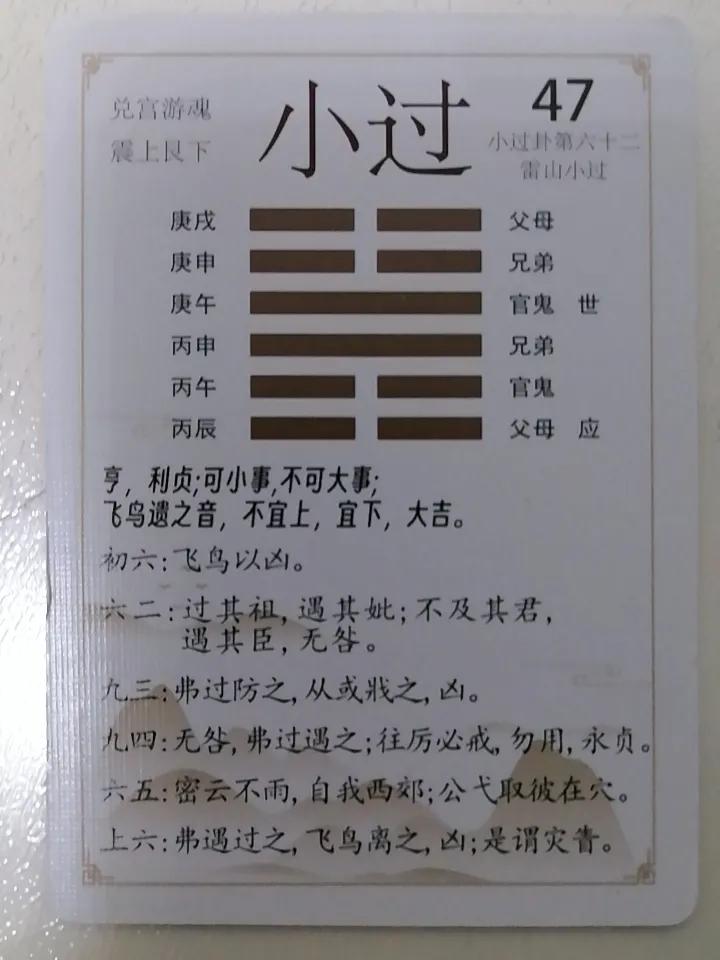 兑宫游魂
震上艮下
小过
47
小过卦第六十二
雷山小过
庚戌 父母
庚申 兄弟
庚午 官鬼 世
丙申 兄弟
丙午 官鬼
丙辰 父母 应
亨，利贞;可小事,不可大事;
飞鸟遗之音，不宜上，宜下，大吉。
初六:飞鸟以凶。
六二:过其祖,遇其妣;不及其君,
遇其臣,无咎。
九三:弗过防之,从或戕之,凶。
九四:无咎,弗过遇之;往厉必戒,勿用,永贞。
六五:密云不雨,自我西郊;公弋取彼在穴。
上六:弗遇过之,飞鸟离之,凶;是谓灾眚。